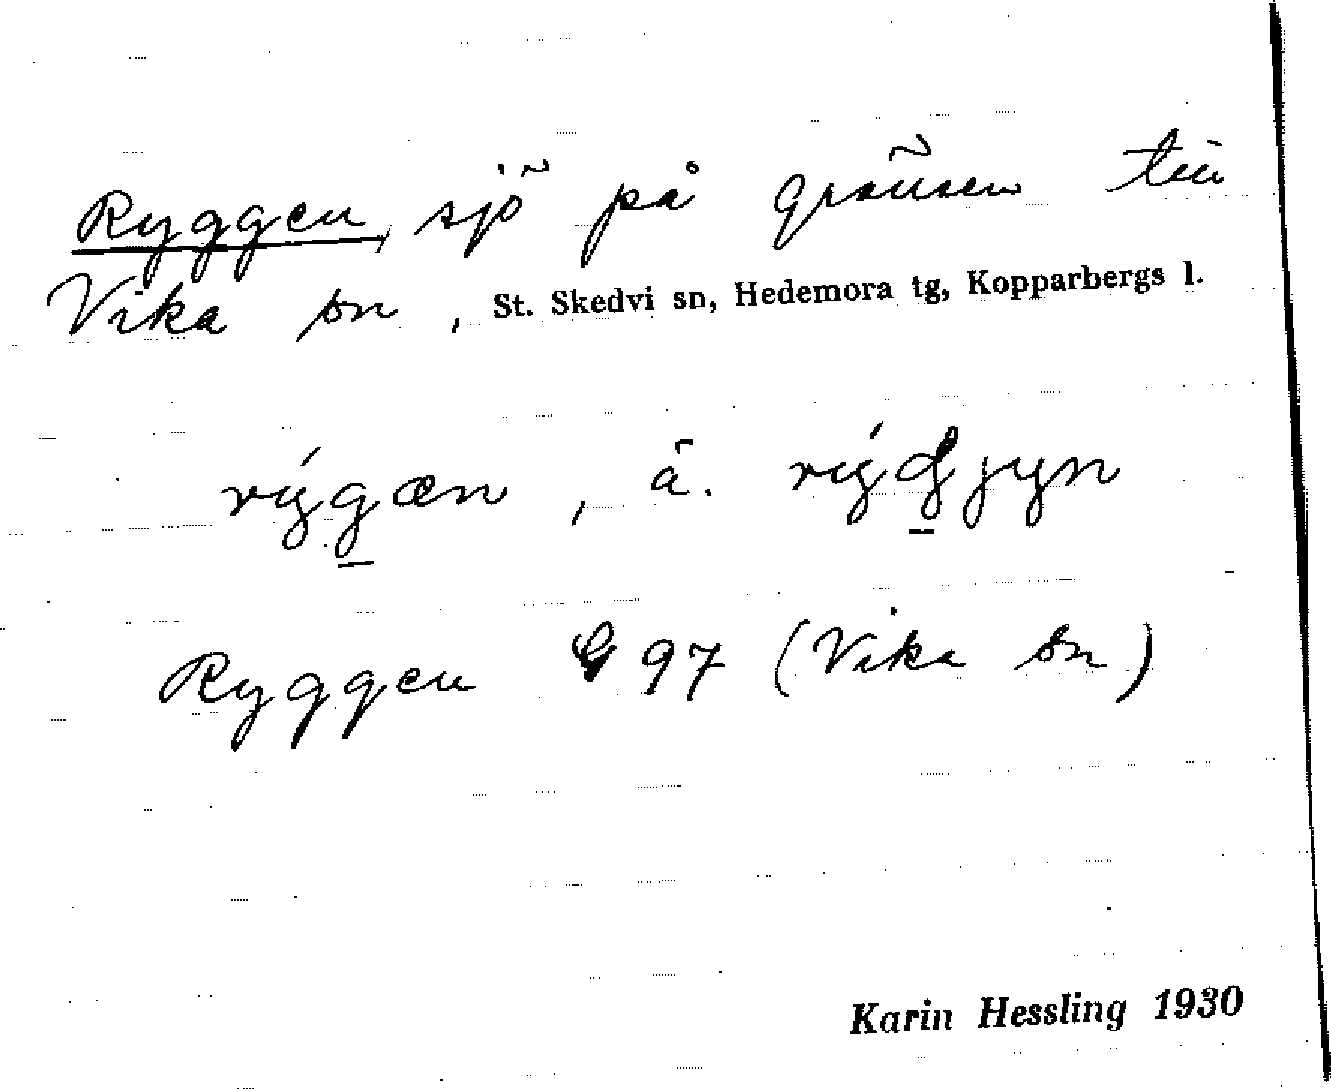 Ryggen, sjö på gränsen till
Vika sn, St. Skedvi sn, Hedemora tg, Kopparbergs l.
rýgæn, ä. rýgjyn
Ryggen G 97 (Vika sn)
Karin Hessling 1930